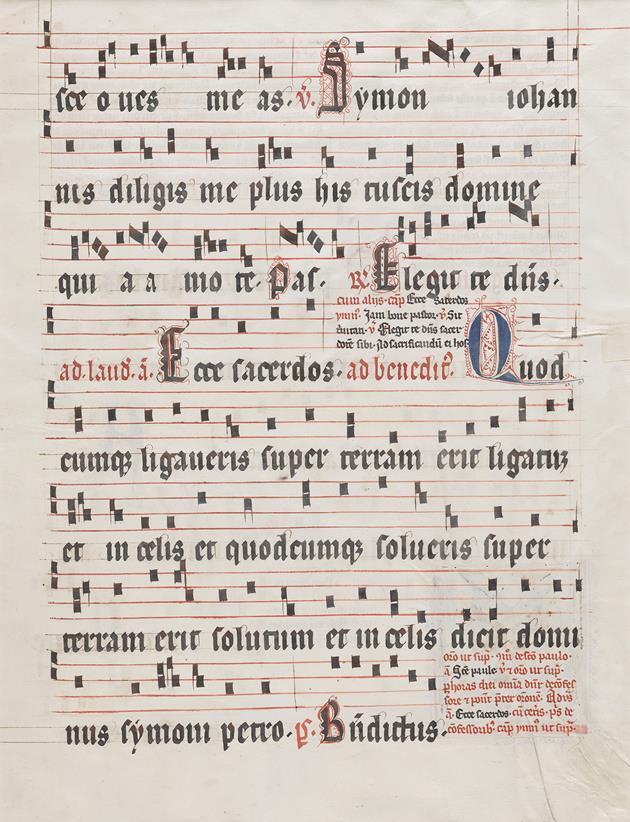 sce oues me as. v. Symon iohan
nis diligis me plus his tu scis domine
qui a a mo te. Pas. R. Elegit te dns.
cum alijs. cap Ecce sacerdos
ymn. Jam bone pastor. v Sit
v Elegit te dns sacer
dote sibi. Ad sacrificandu ei hos
ad laud. a. Ecce sacerdos. ad benedict. Quod
cumqz ligaueris super terram erit ligatuz
et in celis et quodcumqz solueris super
terram erit solutum et in celis dicit domi
oro ut sup. de sco paulo.
a Sce paule v et oro ut sup.
a. Ecce sacerdos. cu ps de
nus symoni petro. ps. Bndictus.
cap ymn ut sup.